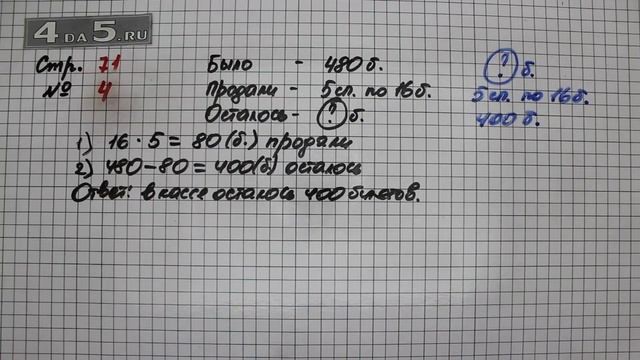 4 DA 5.RU
Стр. 71 Было - 480 б. ? б.
№ 4 Продали - 5 сп. по 16 б. 5 сп. по 16 б.
Осталось - ? б. 400 б.
1) 16 · 5 = 80 (б.) продали
2) 480 - 80 = 400 (б) осталось
Ответ: в кассе осталось 400 билетов.